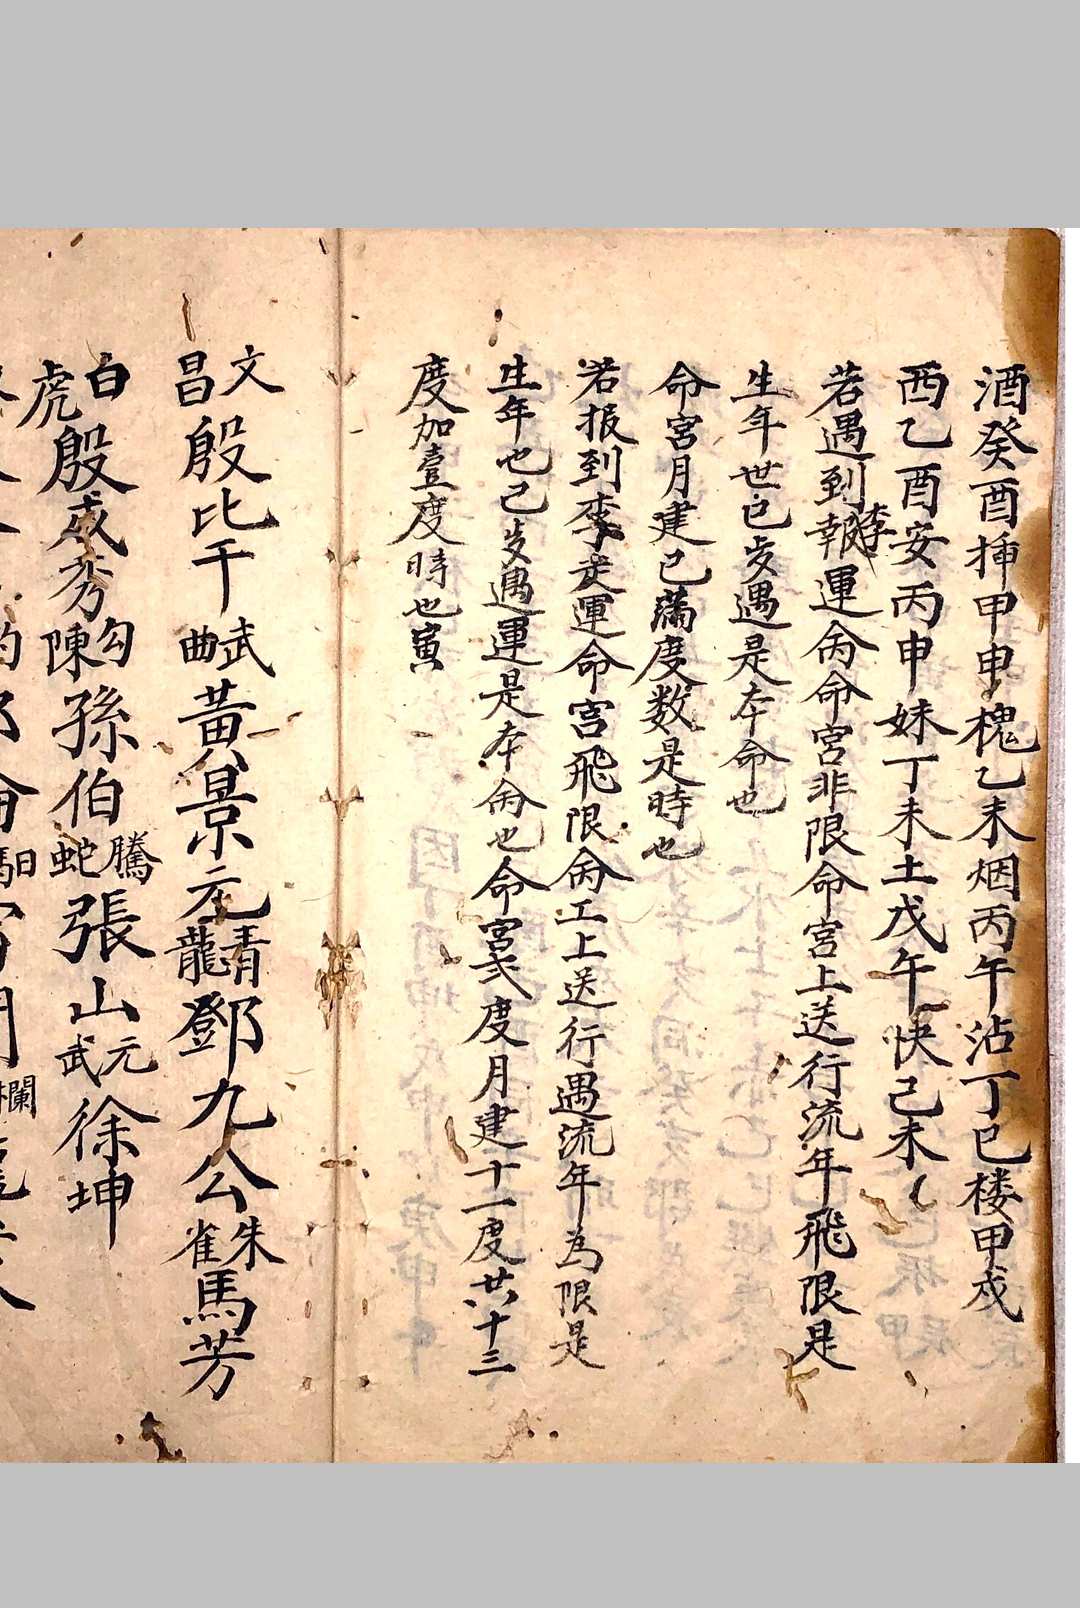 酒癸酉揷甲申槐乙未烟丙午沾丁巳楼甲戍
西乙酉安丙申妹丁未土戊午快己未
若遇到報李運命宮非限命宮上送行流年飛限是
生年世已歩遇是本命也
命宮月建已滿度数是時也
若报到李운命宮飛限工上送行遇流年為限是
生年也己歩遇運是本也命宮弍度月建十一度共十三
度加壹度時也寅
文昌殷比干武曲黃景元青龍鄧九公朱雀馬芳
白虎殷成秀勾陳孫伯騰蛇張山元武徐坤